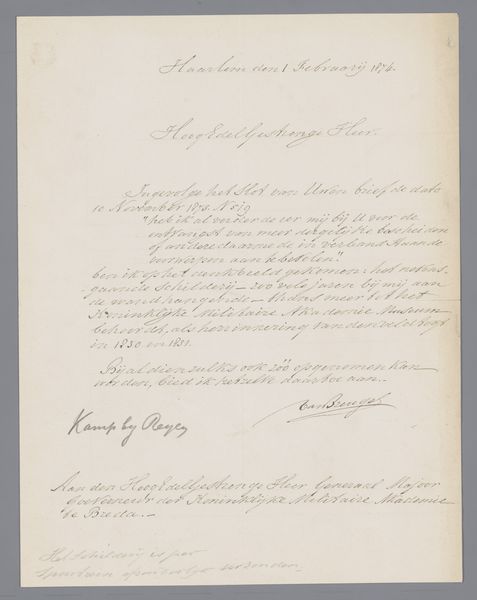 Haarlem den 1 Februarij 1876.
HoogEdelGestrenge Heer.
Ingevolge het Slot van Uwen brief de dato
10 November 1875. No 519
"heb ik al verder de eer mij bij U voor de
ontvangst van meer dergelijke bescheiden
of andere daarmede in verband staande
voorwerpen aan te bevelen".
ben ik op het denkbeeld gekomen: het nevens-
gaande schilderij – zoo vele jaren bij mij aan
de wand hangende – thans meer tot het
Koninklijke Militaire Akademie Museum
behoordt, als herinnering van den veldtogt
in 1830 en 1831.
Bijaldien zulks ook zóó opgenomen kan
worden, bied ik hetzelve daartoe aan.
Van Breugel
Kamp by Reyen
Aan den HoogEdelGestrenge Heer Generaal Majoor
Gouverneur der Koninklijke Militaire Akademie
te Breda. –
Het Schilderij is per
Spoortrein verzonden